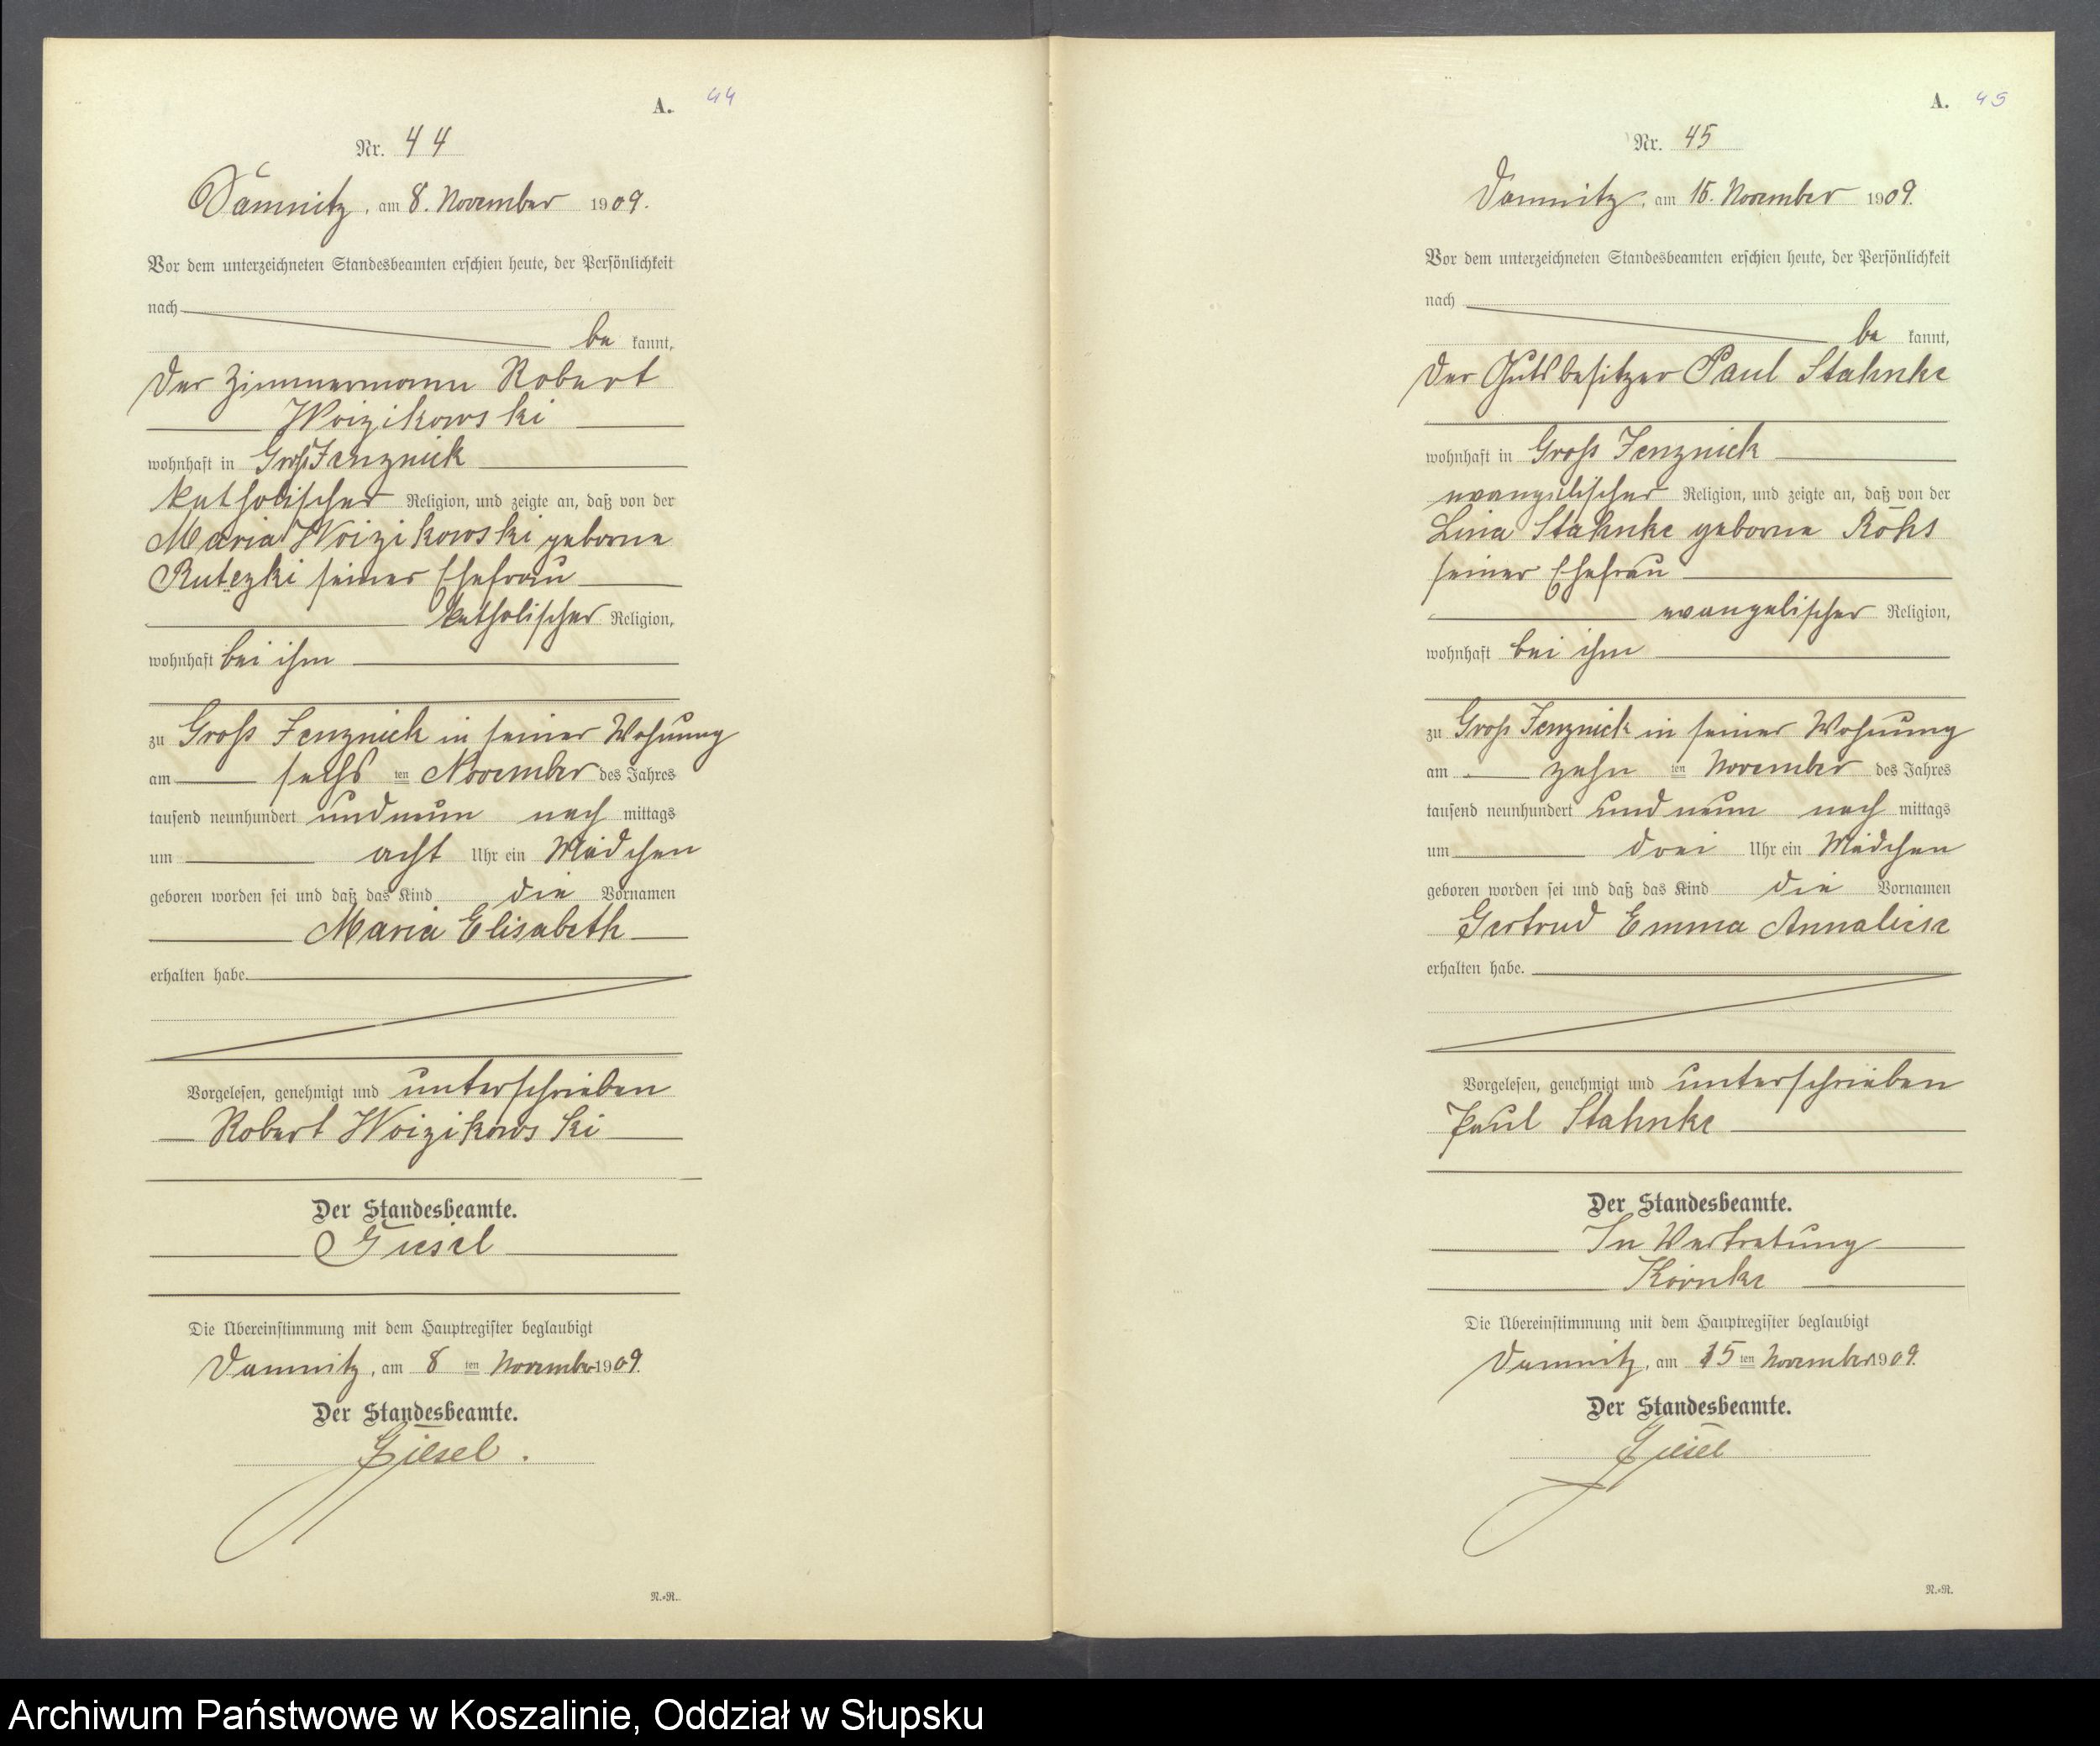 A. 44
Nr. 44
Damnitz, am 8. November 1909.
Vor dem unterzeichneten Standesbeamten erschien heute, der Persönlichkeit
nach
be kannt,
der Zimmermann Robert
Woizikowski
wohnhaft in Groß Jenznick
katholischer Religion, und zeigte an, daß von der
Maria Woizikowski geborne
Rutezki seiner Ehefrau
katholischer Religion,
wohnhaft bei ihm
zu Groß Jenznick in seiner Wohnung
am sechs ten November des Jahres
tausend neunhundert undneun nach mittags
um acht Uhr ein Mädchen
geboren worden sei und daß das Kind die Vornamen
Maria Elisabeth
erhalten habe.
Vorgelesen, genehmigt und unterschrieben
Robert Woizikowski
Der Standesbeamte.
Giesel
Die Übereinstimmung mit dem Hauptregister beglaubigt
Damnitz, am 8 ten November 1909.
Der Standesbeamte.
Giesel.
N.=R.
A. 45
Nr. 45
Damnitz, am 15. November 1909.
Vor dem unterzeichneten Standesbeamten erschien heute, der Persönlichkeit
nach
be kannt,
der Gutsbesitzer Paul Stahnke
wohnhaft in Groß Jenznick
evangelischer Religion, und zeigte an, daß von der
Lina Stahnke geborne Röhs
seiner Ehefrau
evangelischer Religion,
wohnhaft bei ihm
zu Groß Jenznick in seiner Wohnung
am zehn ten November des Jahres
tausend neunhundert und neun nach mittags
um drei Uhr ein Mädchen
geboren worden sei und daß das Kind die Vornamen
Gertrud Emma Annaliese
erhalten habe.
Vorgelesen, genehmigt und unterschrieben
Paul Stahnke
Der Standesbeamte.
In Vertretung
Körnke
Die Übereinstimmung mit dem Hauptregister beglaubigt
Damnitz, am 15 ten November 1909.
Der Standesbeamte.
Giesel
N.=R.
Archiwum Państwowe w Koszalinie, Oddział w Słupsku